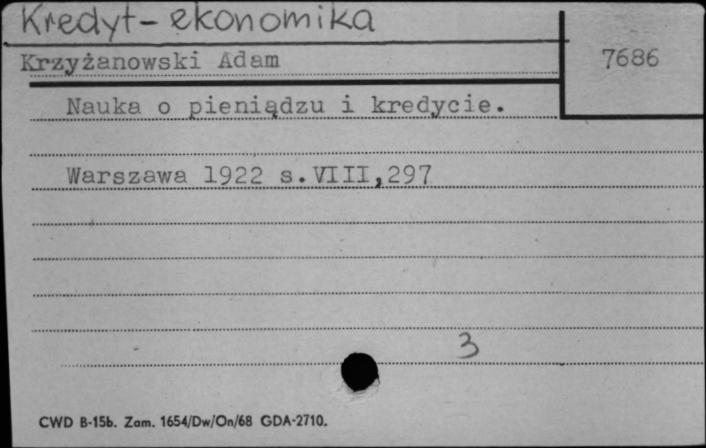 Kredyt-ekonomika
Krzyżanowski Adam
7686
Nauka o pieniądzu i kredycie.
Warszawa 1922 s.VIII,297
3
CWD B-15b. Zam. 1654/Dw/On/68 GDA-2710.